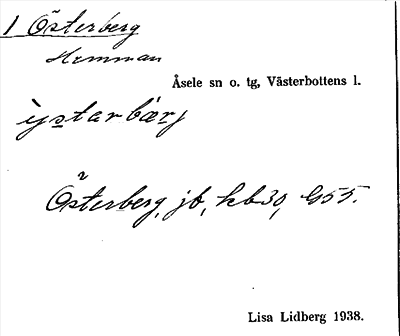 1 Österberg
Hemman
Åsele sn o. tg, Västerbottens l.
ỳstarbærj
Österberg, jb, hb 30, G55.
Lisa Lidberg 1938.